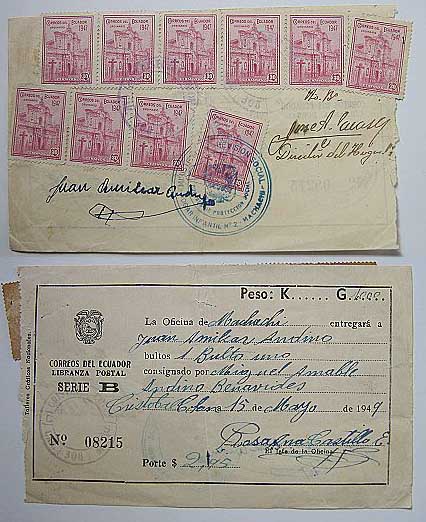 CORREOS DEL ECUADOR
1947
CORREOS DEL ECUADOR
1947
CORREOS DEL ECUADOR
1947
CORREOS DEL ECUADOR
1947
CORREOS DEL ECUADOR
1947
CORREOS DEL ECUADOR
1947
CORREOS DEL ECUADOR
1947
CORREOS DEL ECUADOR
1947
CORREOS DEL ECUADOR
1947
CORREOS DEL ECUADOR
1947
Vto. Bo.
Jose A.
Director del Hogar
PREVISION SOCIAL
HOGAR INFANTIL Nº 2 - MACHACHI
Juan Amilcar Andino
Peso: K...... G.
La Oficina de Machachi entregará a
Juan Amilcar Andino
bultos 1 Bulto uno
consignado por Miguel Amable
Andino Benavides
Cristobal Colon a 15 de Mayo de 1949
Rosa Castillo E.
El Jefe de la Oficina
Porte $ 2,45
CORREOS DEL ECUADOR
LIBRANZA POSTAL
SERIE B
Nº 08215
Talleres Gráficos Nacionales.